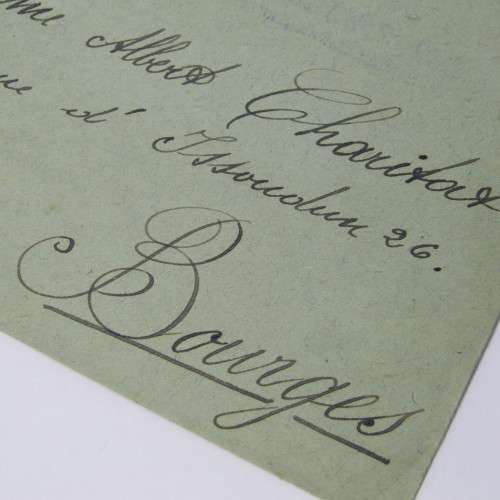 me Albert Charitat
ue d'Issoudun 26.
Bourges